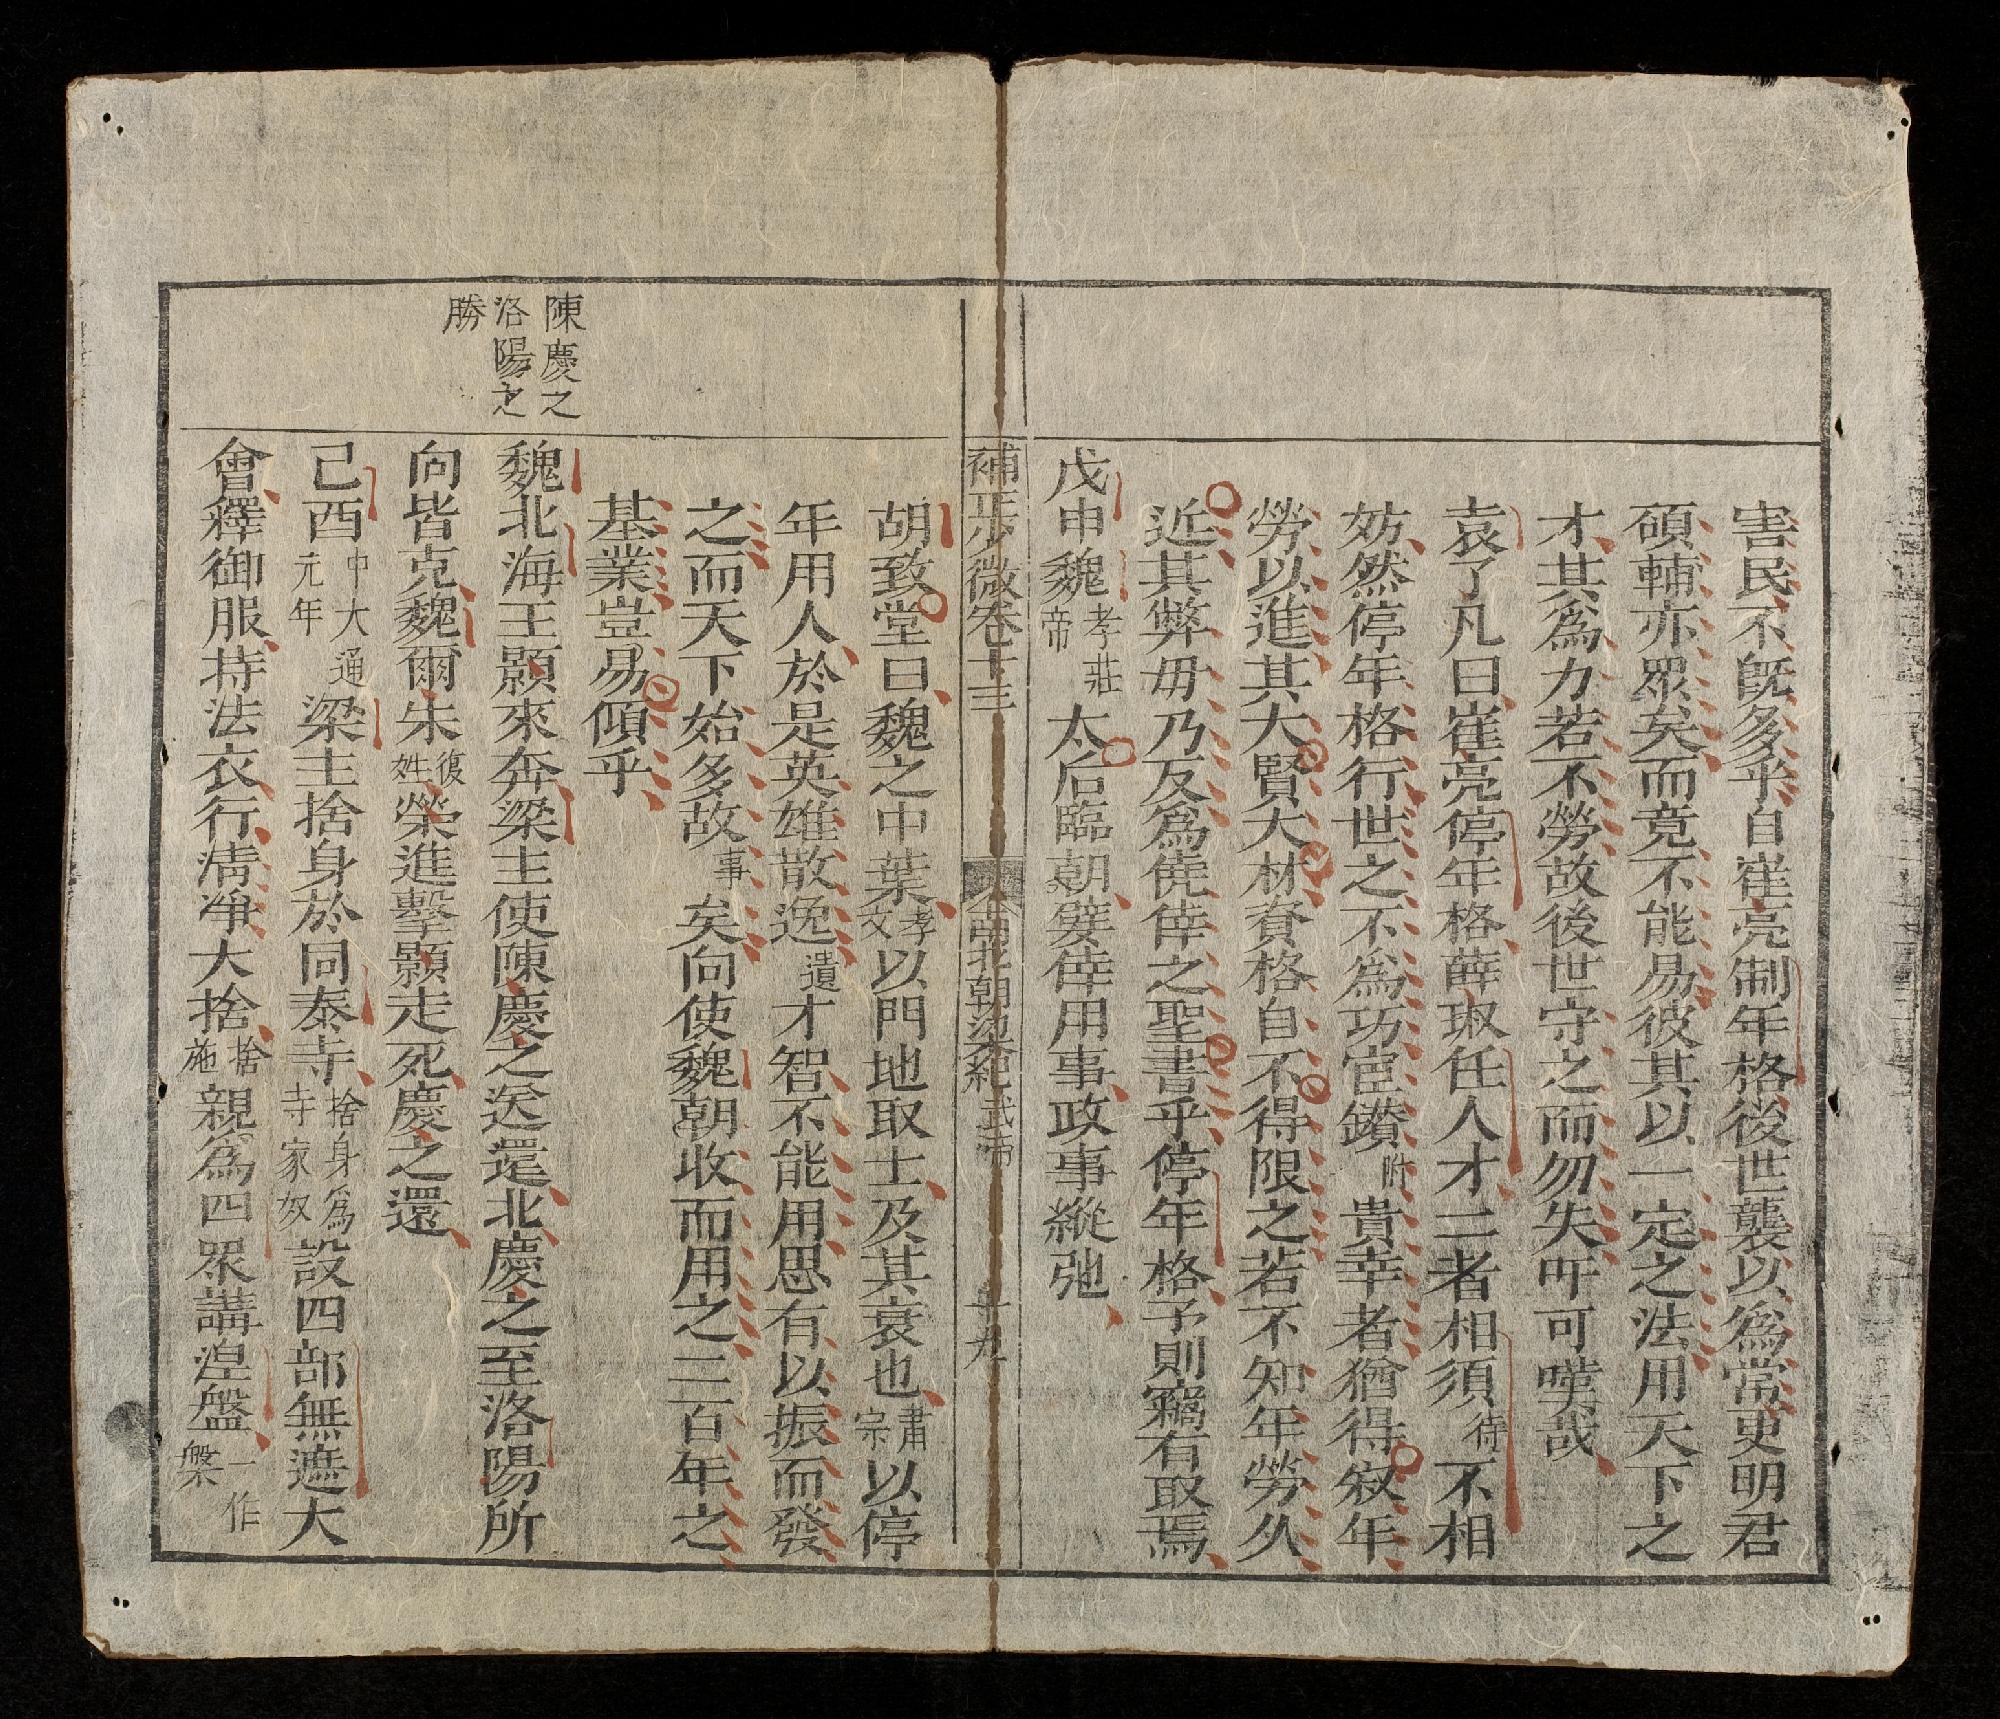 害民不旣多乎自崔亮制年格後世襲以爲常更明君
碩輔亦眾矣而竟不能易彼其以一定之法用天下之
才其爲力若不勞故後世守之而勿失吁可嘆哉
袁了凡曰崔亮停年格薛琡任人才二者相須待不相
妨然停年格行世之不爲功宦鑽附貴幸者猶得叙年
勞以進其大賢大材資格自不得限之若不知年勞久
近其弊毋乃反爲僥倖之聖書乎停年格予則竊有取焉
戊申魏孝莊帝太后臨朝嬖倖用事政事縱弛
補正少微卷十三 南北朝梁紀武帝 十九
胡致堂曰魏之中葉孝文以門地取士及其衰也肅宗以停
年用人於是英雄散逸遺才智不能用思有以振而發
之而天下始多故事矣向使魏朝收而用之二百年之
基業豈易傾乎
陳慶之
洛陽之
勝
魏北海王顥來奔梁主使陳慶之送還北慶之至洛陽所
向皆克魏爾朱復姓榮進擊顥走死慶之還
己酉中大通元年梁主捨身於同泰寺捨身爲寺家奴設四部無遮大
會釋御服持法衣行淸淨大捨捨施親爲四眾講涅盤一作槃